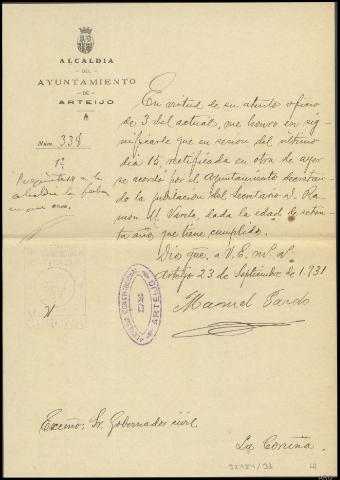 ALCALDIA
DEL
AYUNTAMIENTO
DE
ARTEIJO
Núm. 338
1º
Preguntese a la
alcaldía la fecha
en que
En virtud de su atento oficio
de 3 del actual, me honro en sig-
nificarle que en sesión del último
dia 15, rectificada en otra de ayer
se acordó por el Ayuntamiento decretan-
do la jubilación del Secretario D. Ra-
mon M. Varela, dada la edad de seten-
ta años, que tiene cumplido.
Dio que. a V.E. m. a.
Arteijo 23 de Septiembre de 1.931
Manuel Pardo
ALCALDIA CONSTITUCIONAL
ARTEIJO
Excmo. Sr. Gobernador civil
La Coruña.